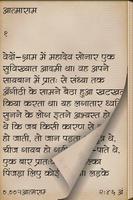 आत्माराम
१
वेदों-ग्राम में महादेव सोनार एक
सुविख्यात आदमी था। वह अपने
सायबान में प्रातः से संध्या तक
अँगीठी के सामने बैठा हुआ खटखट
किया करता था। यह लगातार ध्वनि
सुनने के लोग इतने अभ्यस्त हो
थे कि जब किसी कारण से
हो जाती, तो जान पड़ता था,
चीज गायब हो गयी
एक बार प्रातः
पिंजड़ा लिए कोई
०.००%आत्माराम २:४६ अं